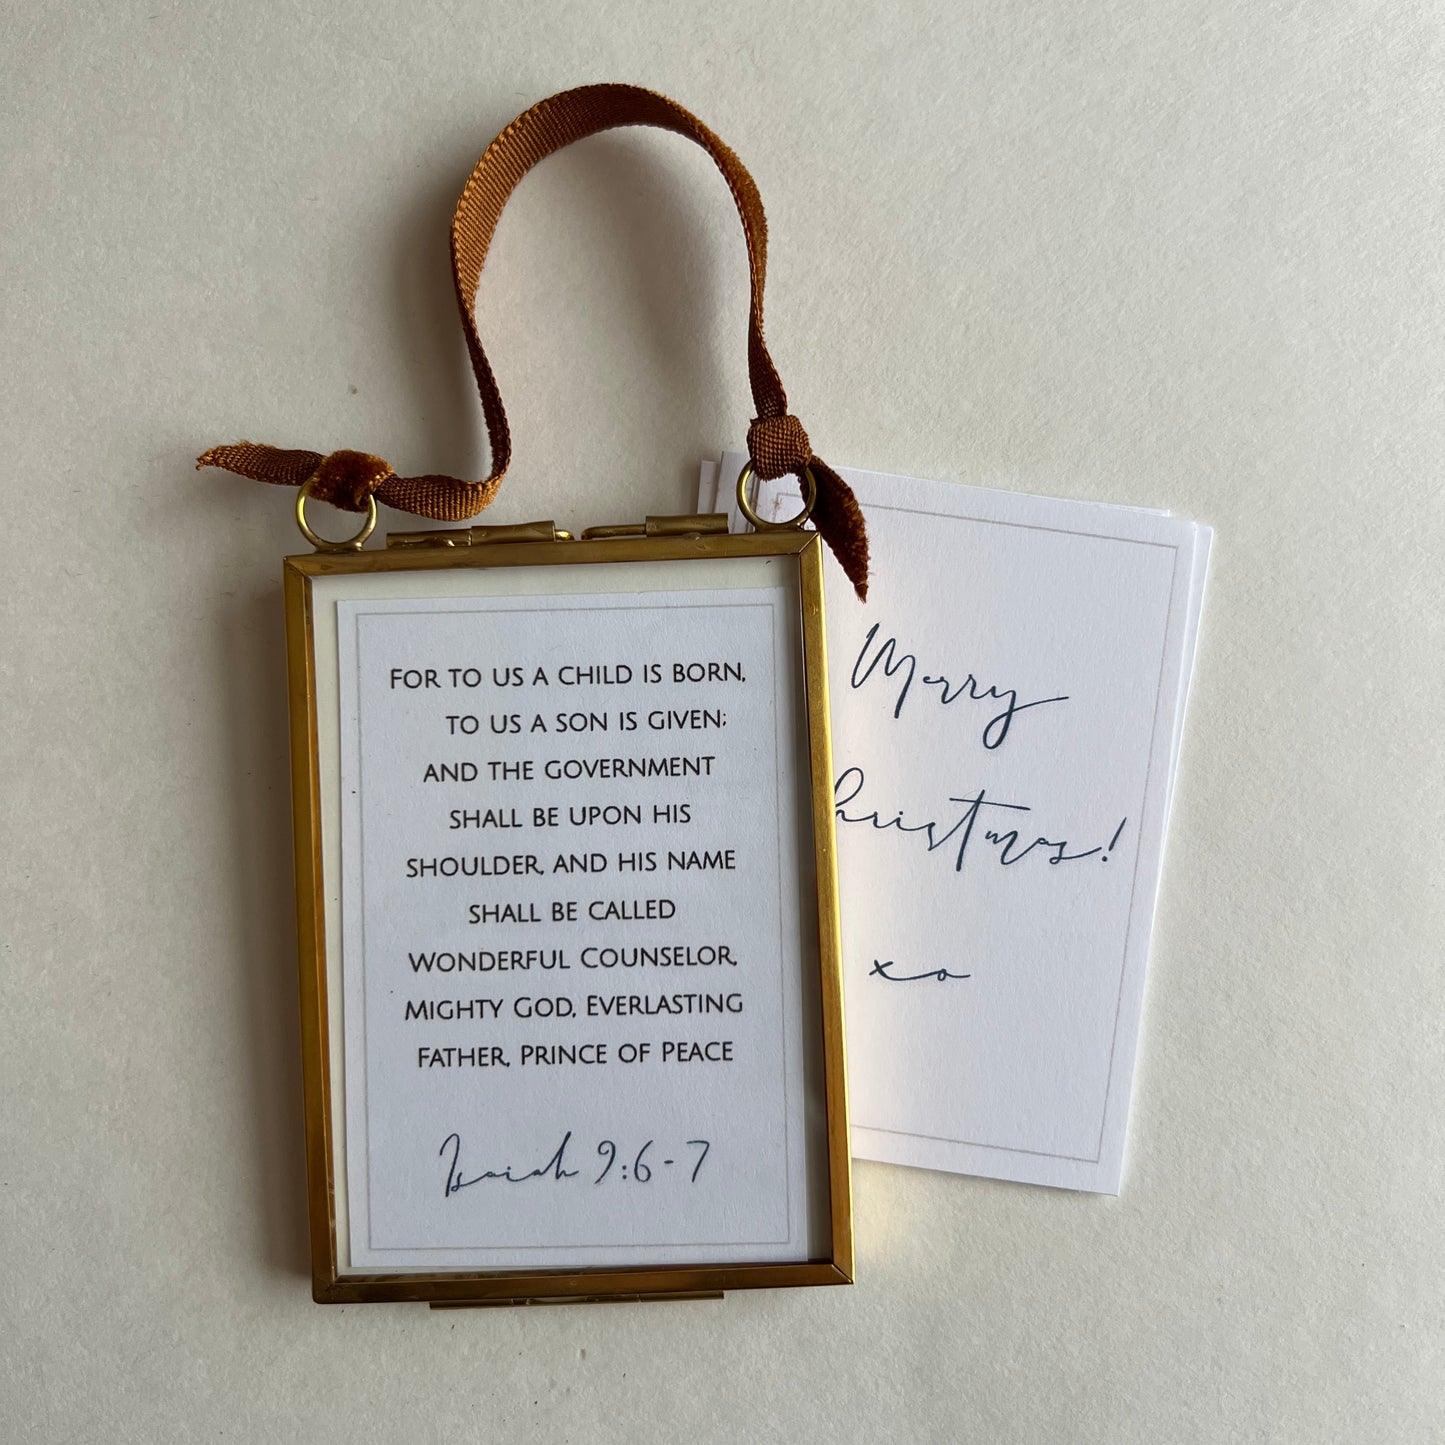 For to us a child is born,
to us a son is given;
and the government
shall be upon his
shoulder, and his name
shall be called
Wonderful Counselor,
Mighty God, Everlasting
Father, Prince of Peace
Isaiah 9:6-7
Merry
hristmas!
xo